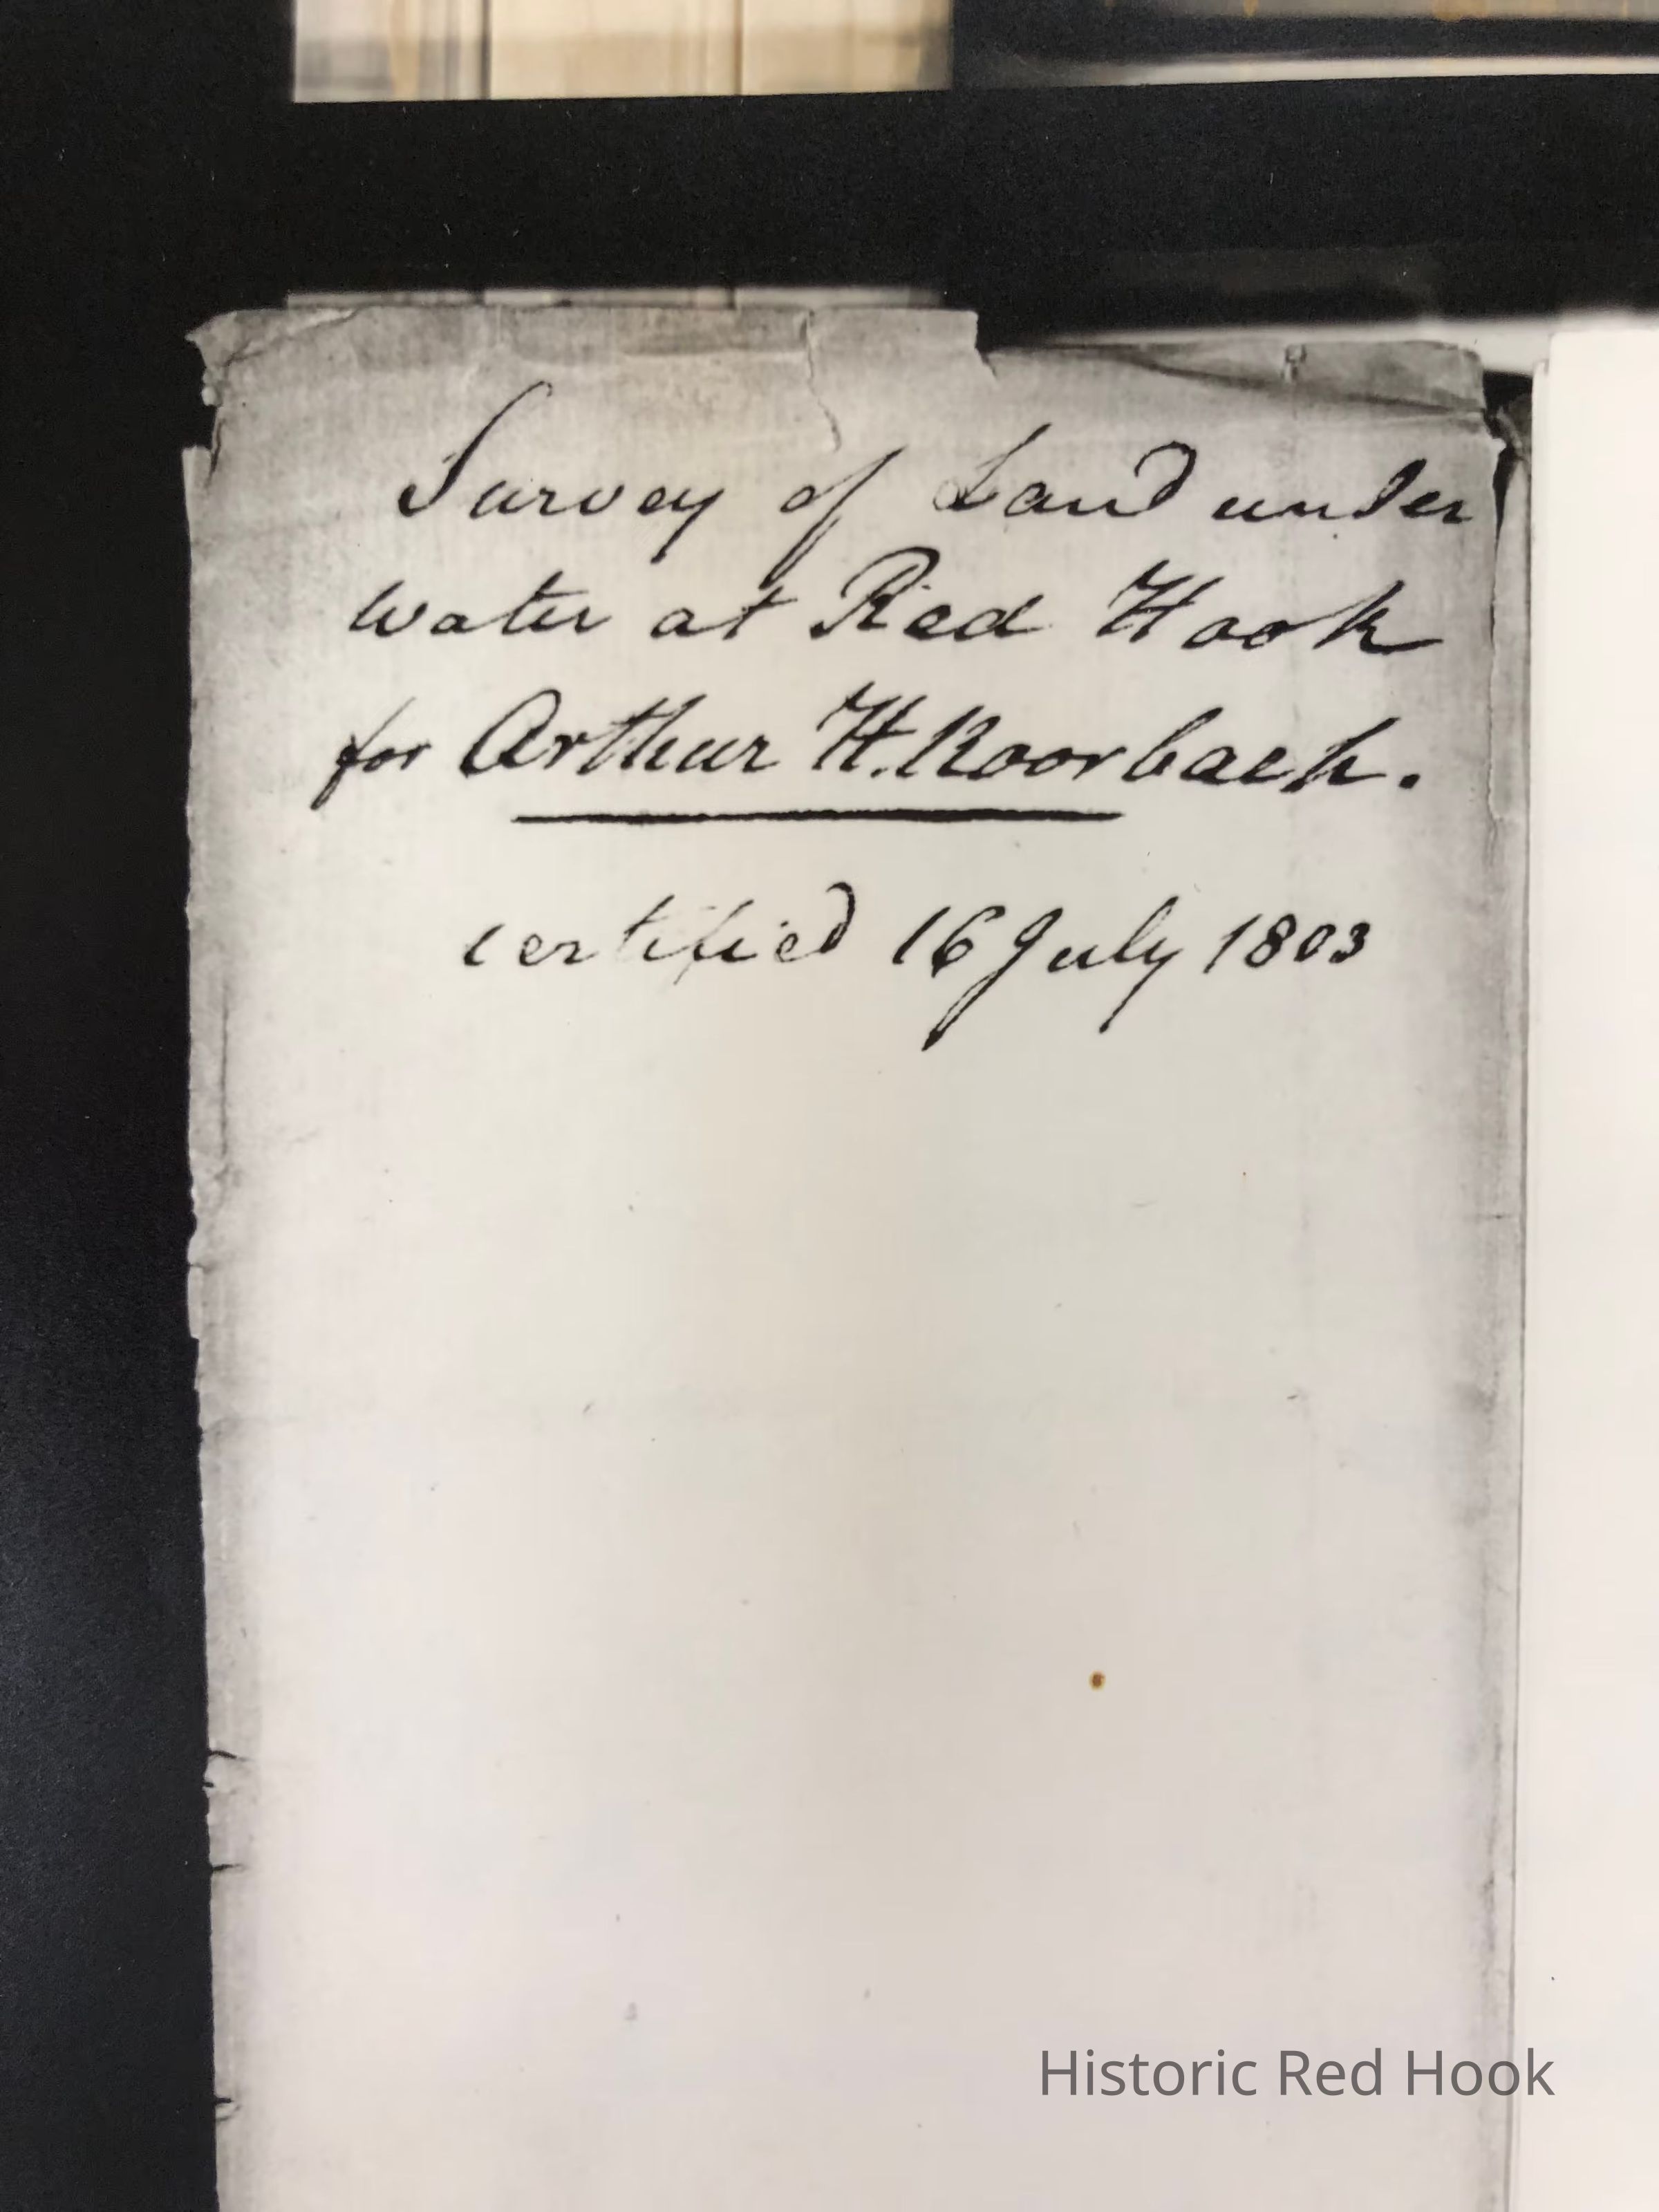 Survey of Land under
water at Red Hook
for Arthur H. Roorback.
certified 16 July 1803
Historic Red Hook